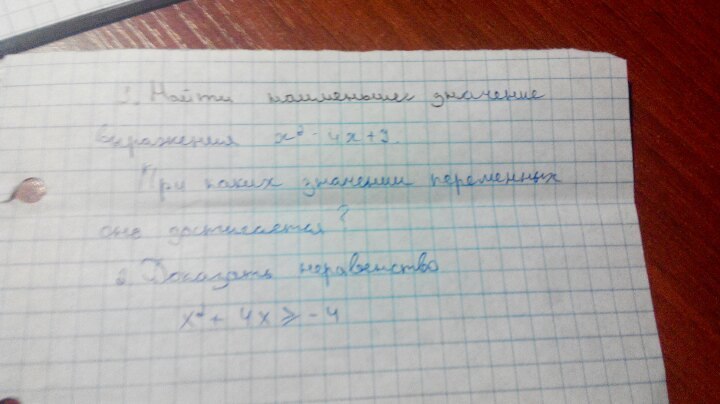 1. Найти наименьшее значение
выражения x² - 4x + 3.
При каких значении переменных
оно достигается?
2. Доказать неравенство
x² + 4x ≥ -4